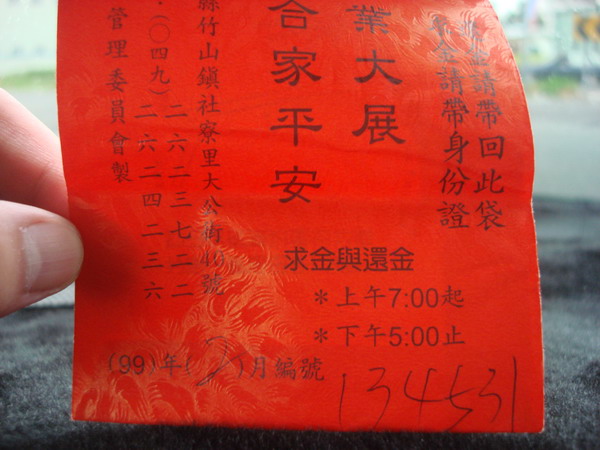 金請帶回此袋
金請帶身份證
業大展
合家平安
縣竹山鎮社寮里大公街40號
(〇四九)二六二三七二二
二六二四二三六
管理委員會製
求金與還金
*上午7:00起
*下午5:00止
(99)年(2)月編號 134531